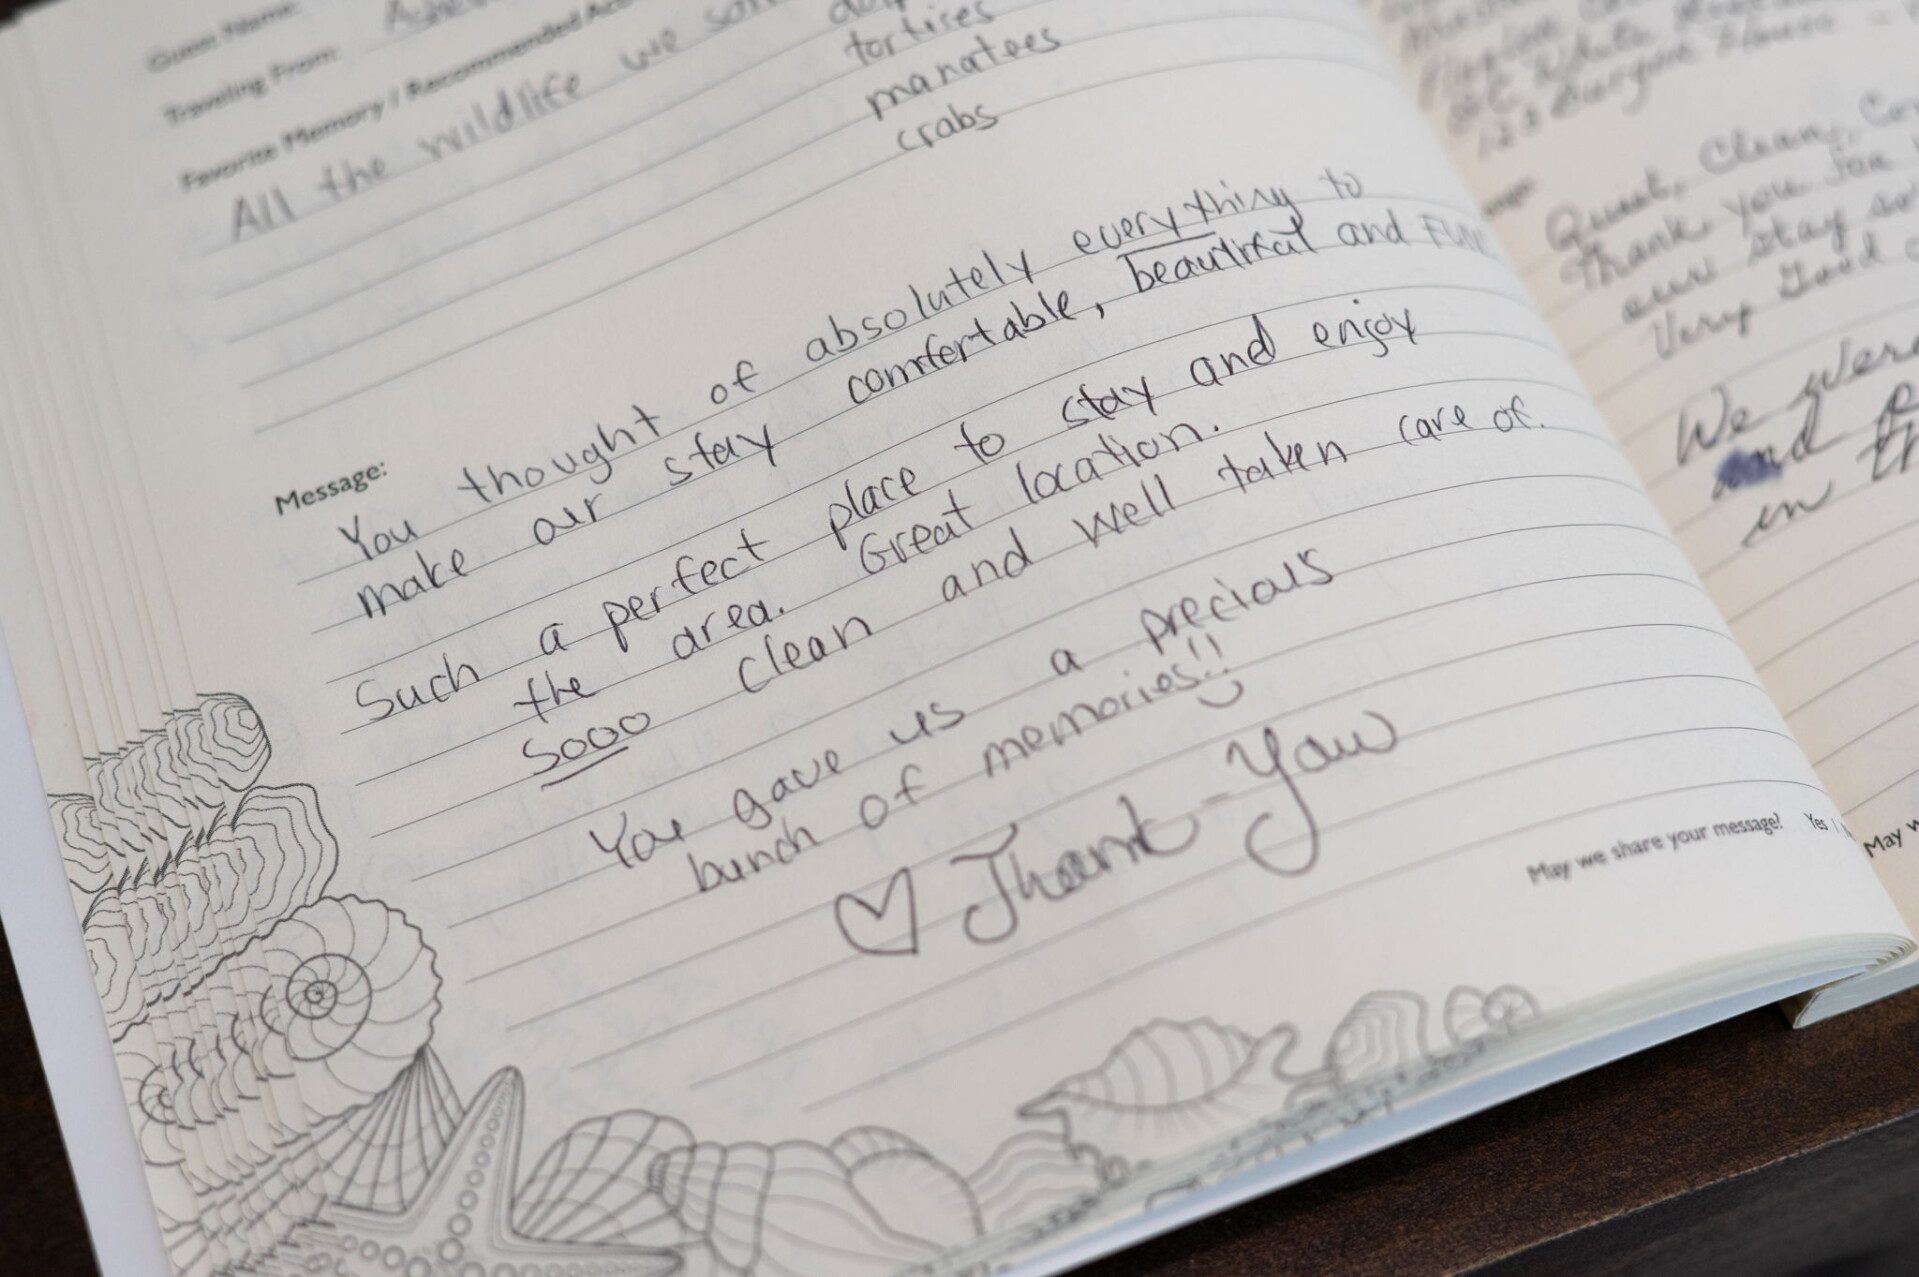 Guest Name:
Traveling From:
Favorite Memory / Recommended
All the wildlife we
tortises
manatees
crabs
Message:
You thought of absolutely everything to
make our stay comfortable, beautiful and FUN
Such a perfect place to stay and enjoy
the area. Great location.
Sooo clean and well taken care of.
You gave us a precious
bunch of memories!!
♡ Thank-You
May we share your message? Yes
Quiet, Clean,
Thank you for
our stay
Very Good
We were
and
in
May